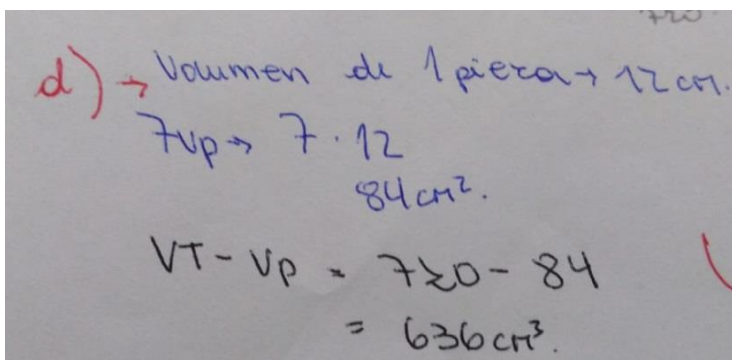 720
d) → Volumen de 1 pieza → 12 cm.
7Vp → 7 · 12
84 cm².
VT - Vp = 720 - 84
= 636 cm³.